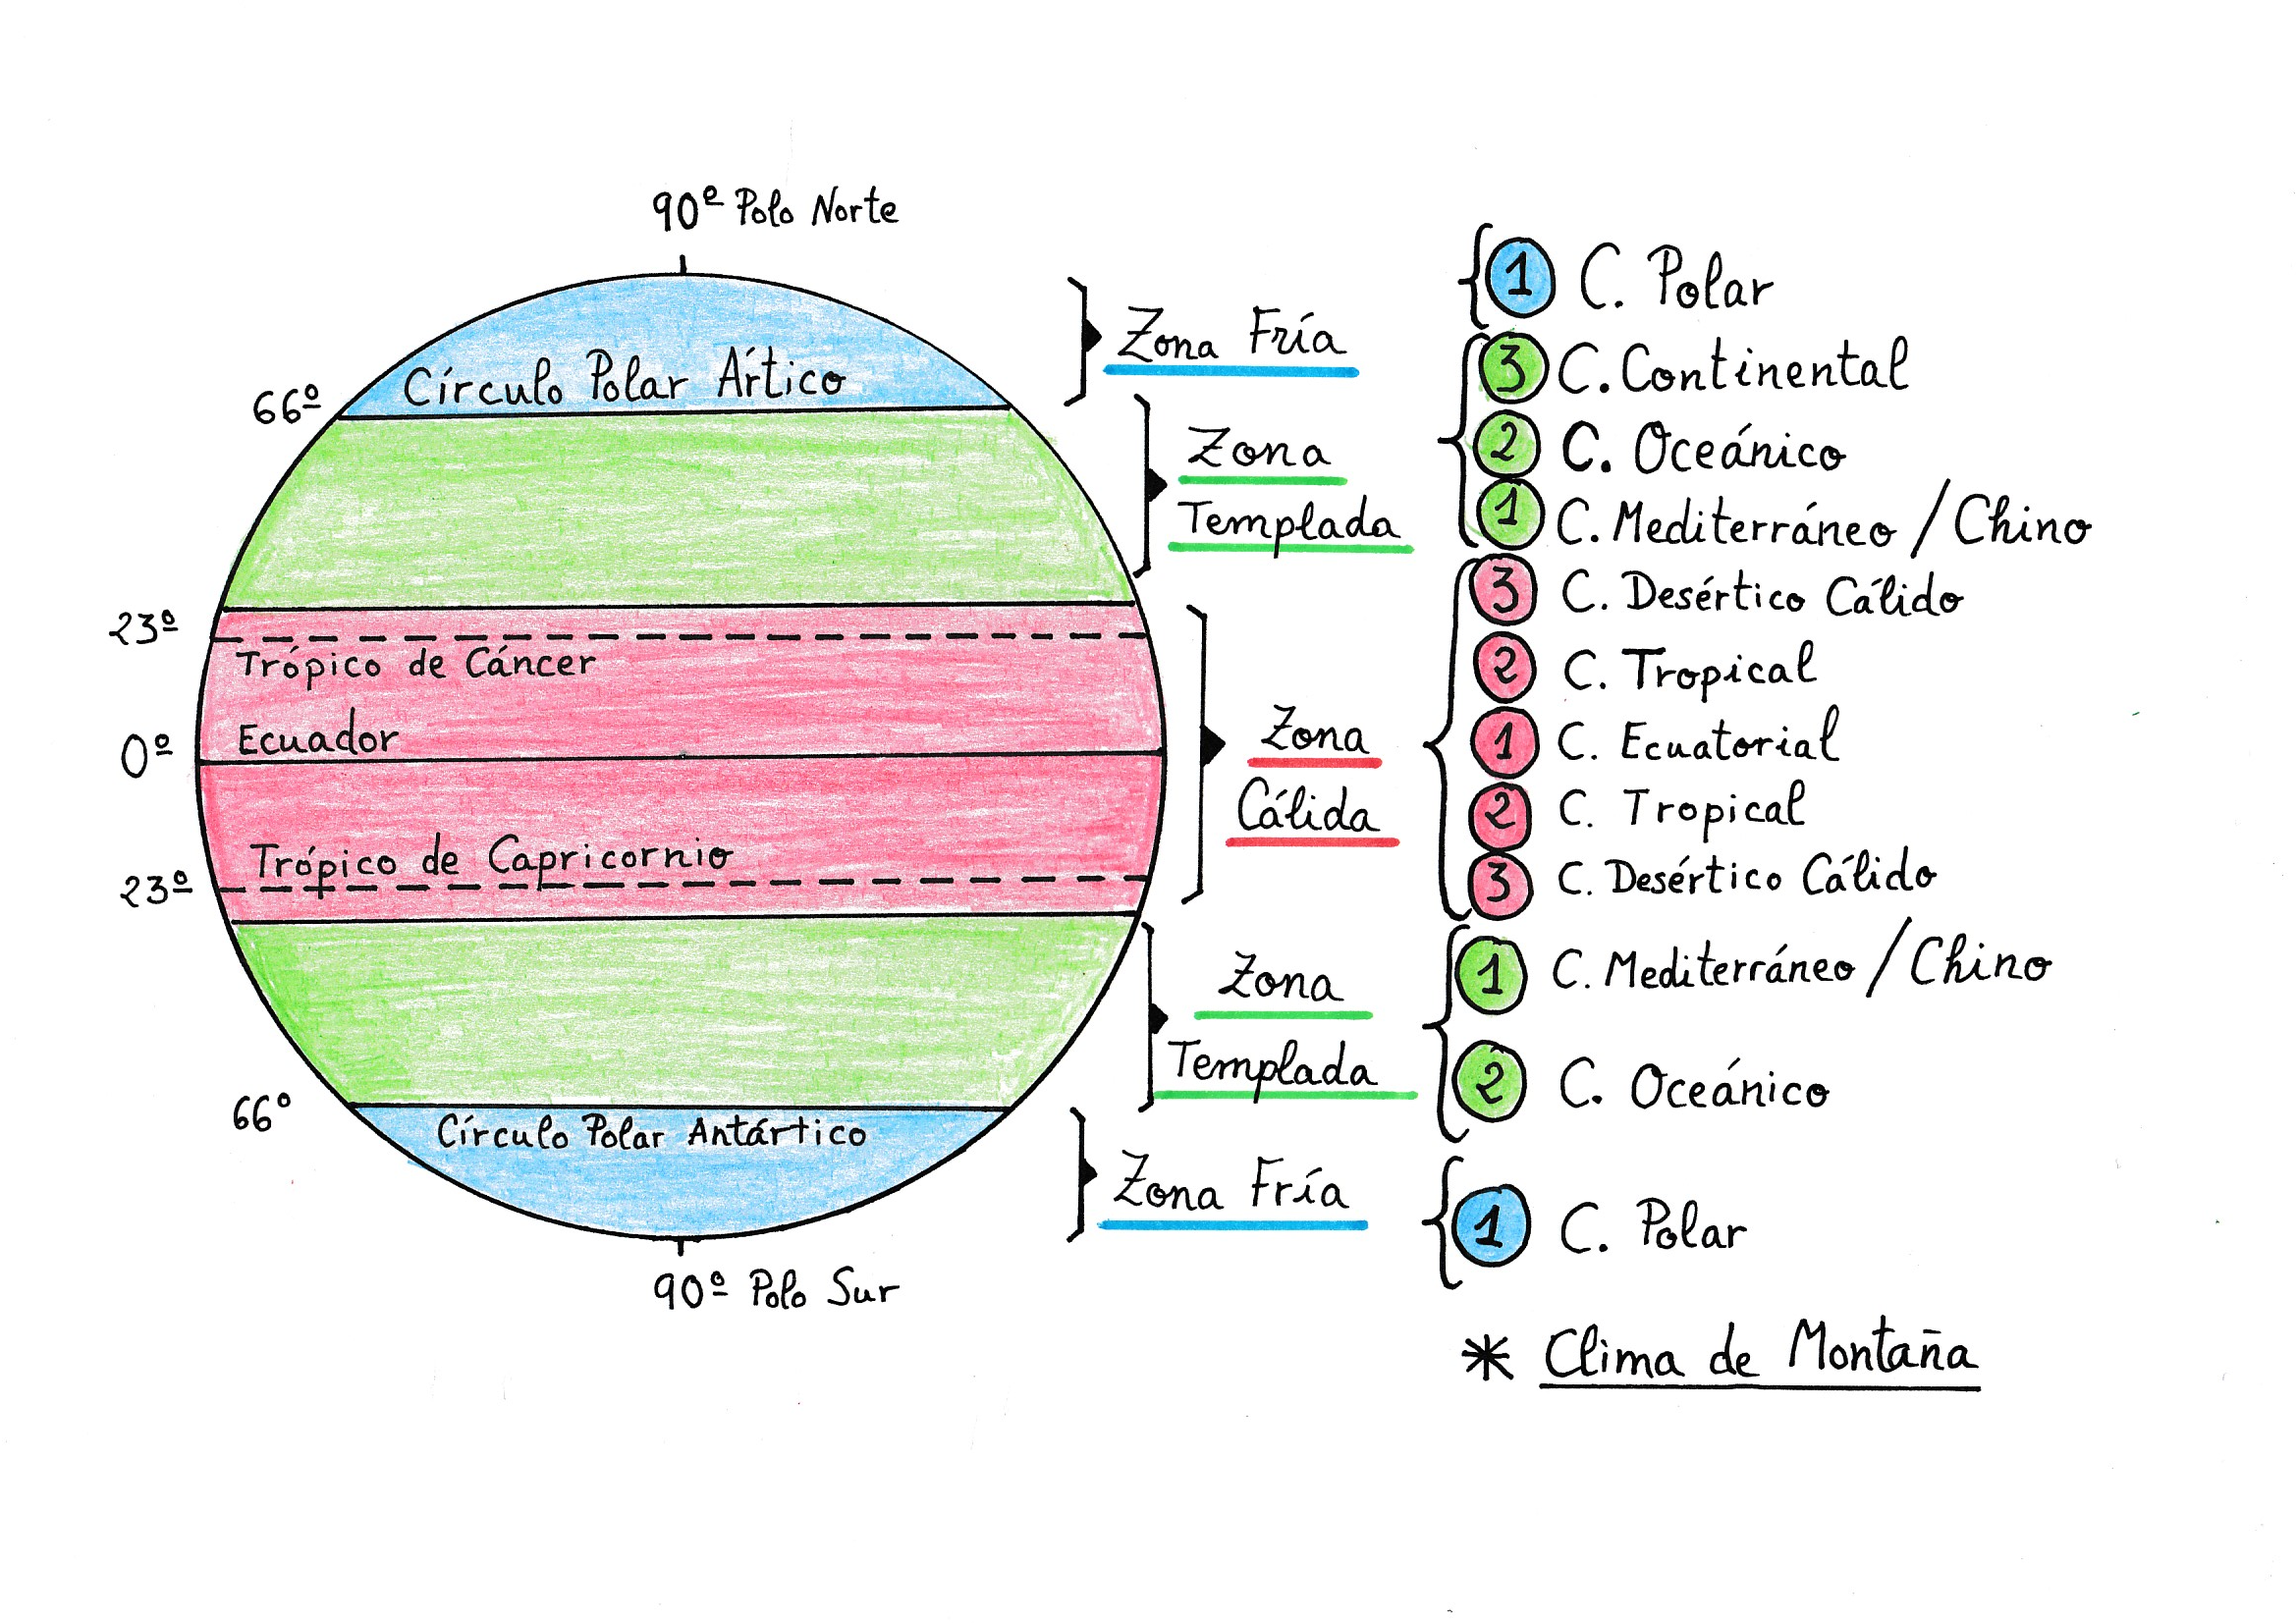 90º Polo Norte
66º
Círculo Polar Ártico
23º
Trópico de Cáncer
0º
Ecuador
Trópico de Capricornio
23º
66º
Círculo Polar Antártico
90º Polo Sur
Zona Fría
Zona
Templada
Zona
Cálida
Zona
Templada
Zona Fría
1 C. Polar
3 C. Continental
2 C. Oceánico
1 C. Mediterráneo / Chino
3 C. Desértico Cálido
2 C. Tropical
1 C. Ecuatorial
2 C. Tropical
3 C. Desértico Cálido
1 C. Mediterráneo / Chino
2 C. Oceánico
1 C. Polar
* Clima de Montaña